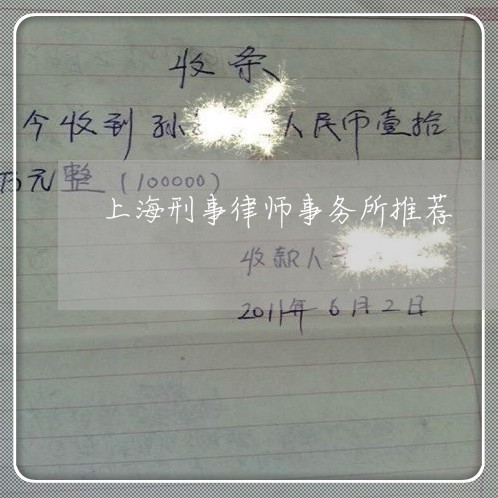 收条
今收到孙 人民币壹拾
万元整(100000)
上海刑事律师事务所推荐
收款人
2011年6月2日